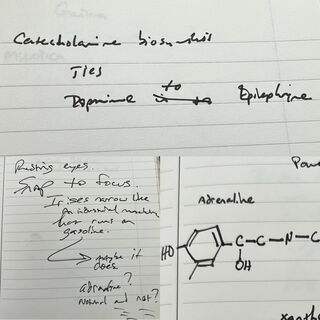 Catecholamine biosynthesis
Ties
to
Dopamine Epinephrine
Resting eyes.
Snap to focus.
Irises narrow like
an industrial machine
that runs on
gasoline.
maybe it
does.
adrenaline?
Natural and not?
Adrenaline
HO
C-C-N-C
OH